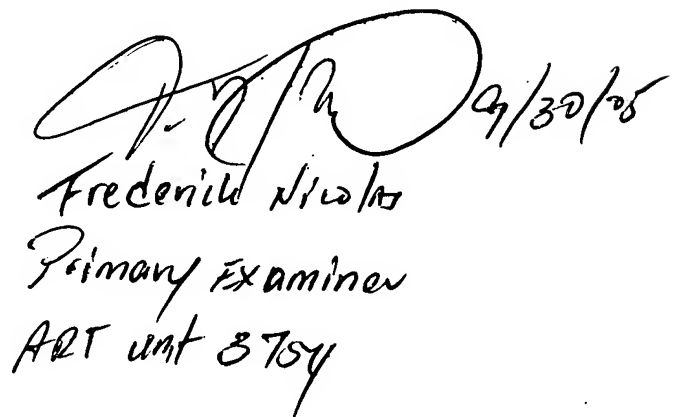 9/30/05
Frederick Nicolas
Primary Examiner
ART unit 3754